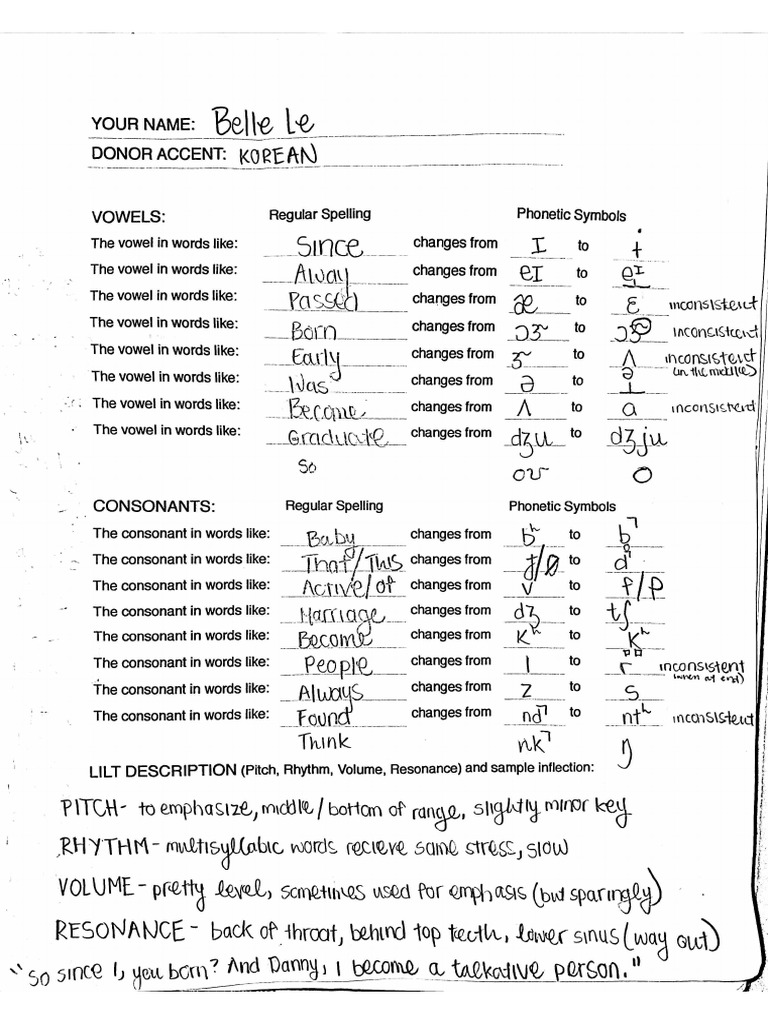 YOUR NAME: Belle Le
DONOR ACCENT: KOREAN
VOWELS: Regular Spelling Phonetic Symbols
The vowel in words like: Since changes from I to
The vowel in words like: Away changes from eI to eI
The vowel in words like: Passed changes from æ to ɛ inconsistent
The vowel in words like: Born changes from ɔɝ to ɔɝ inconsistent
The vowel in words like: Early changes from ɝ to ʌ inconsistent (in the middle)
The vowel in words like: Was changes from ə to ə
The vowel in words like: Become changes from ʌ to a inconsistent
The vowel in words like: Graduate changes from dʒu to dʒju
So oʊ o
CONSONANTS: Regular Spelling Phonetic Symbols
The consonant in words like: Baby changes from bʰ to b̚
The consonant in words like: That/This changes from to d
The consonant in words like: Active/of changes from v to f/p
The consonant in words like: Marriage changes from dʒ to tʃ
The consonant in words like: Become changes from kʰ to kʰ
The consonant in words like: People changes from l to r inconsistent (when at end)
The consonant in words like: Always changes from z to s
The consonant in words like: Found changes from nd̚ to ntʰ inconsistent
Think nk̚ ŋ
LILT DESCRIPTION (Pitch, Rhythm, Volume, Resonance) and sample inflection:
PITCH- to emphasize, middle/bottom of range, slightly minor key
RHYTHM- multisyllabic words recieve same stress, slow
VOLUME- pretty level, sometimes used for emphasis (but sparingly)
RESONANCE- back of throat, behind top teeth, lower sinus (way out)
"So since I, you born? And Danny, I become a talkative person."